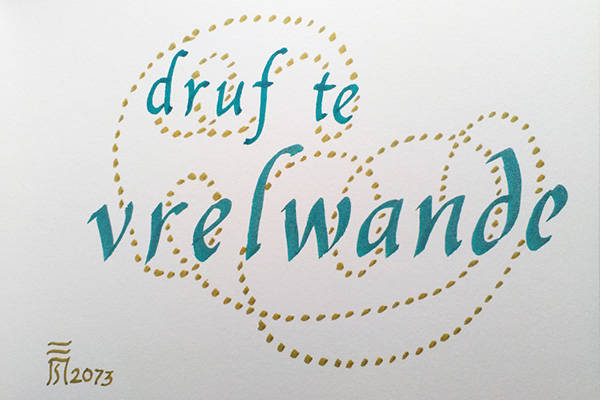 druf te
vrelwande
2073